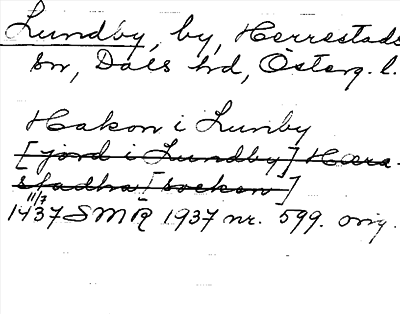 Lundby, by, Herrestads
sn, Dals hd, Österg. l.
Hakon i Lunby
[jord i Lundby] Hæra-
stadha [socken]
11/7
1437 SMR 1937 nr. 599. orig.